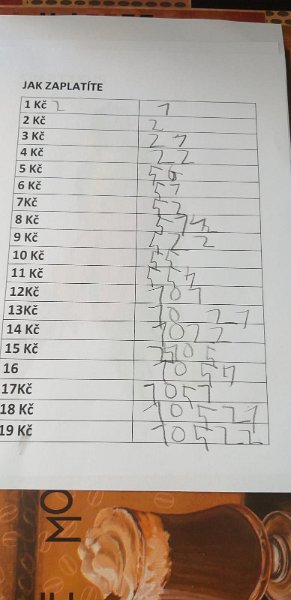 JAK ZAPLATÍTE
1 Kč 2 1
2 Kč 2
3 Kč 2 1
4 Kč 2 2
5 Kč 5
6 Kč 5 1
7Kč 5 2
8 Kč 5
9 Kč 2 2
10 Kč 5 5
11 Kč 5 5 1
12Kč 10 1
13Kč 10 2 1
14 Kč 10 2 2
15 Kč 10 5
16 10 5 1
17Kč 10 5 1
18 Kč 10 5 2 1
19 Kč 10 5 2 2
MO
E